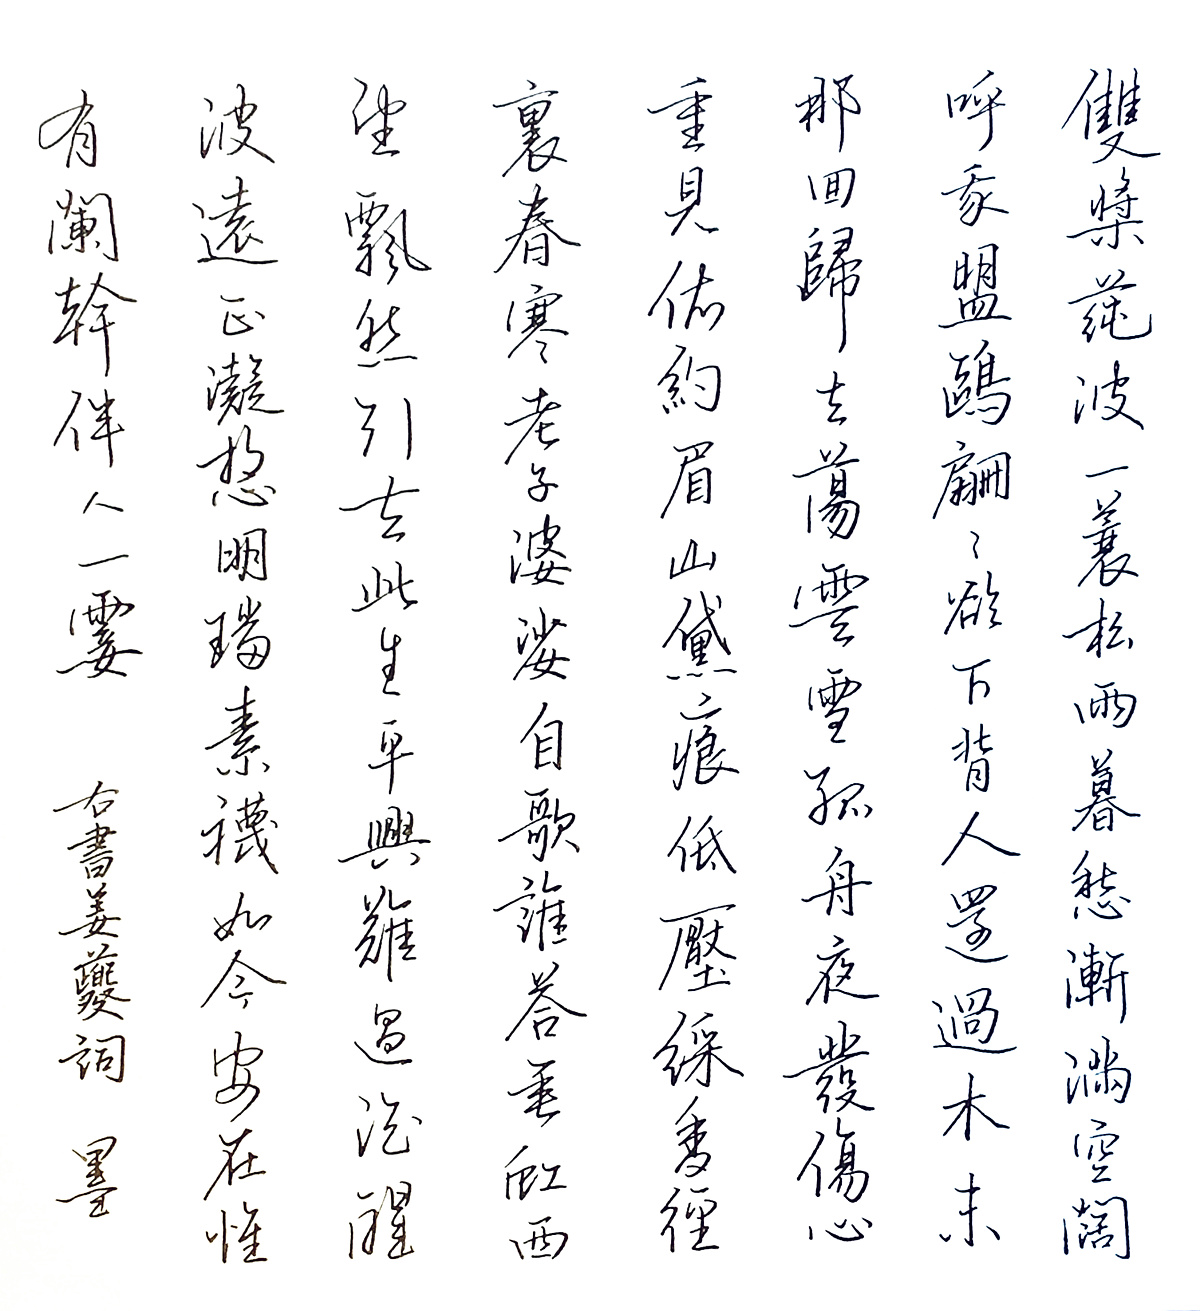 雙槳蒓波一蓑松雨暮愁漸滿空闊
呼我盟鷗翩〻欲下背人還過木末
那回歸去蕩雲雪孤舟夜發傷心
重見依約眉山黛痕低壓綵香徑
裏春寒老子婆娑自歌誰答垂虹西
望飄然引去此生平興難遏酒醒
波遠正凝想明璫素襪如今安在惟
有闌幹伴人一霎 右書姜夔詞 墨